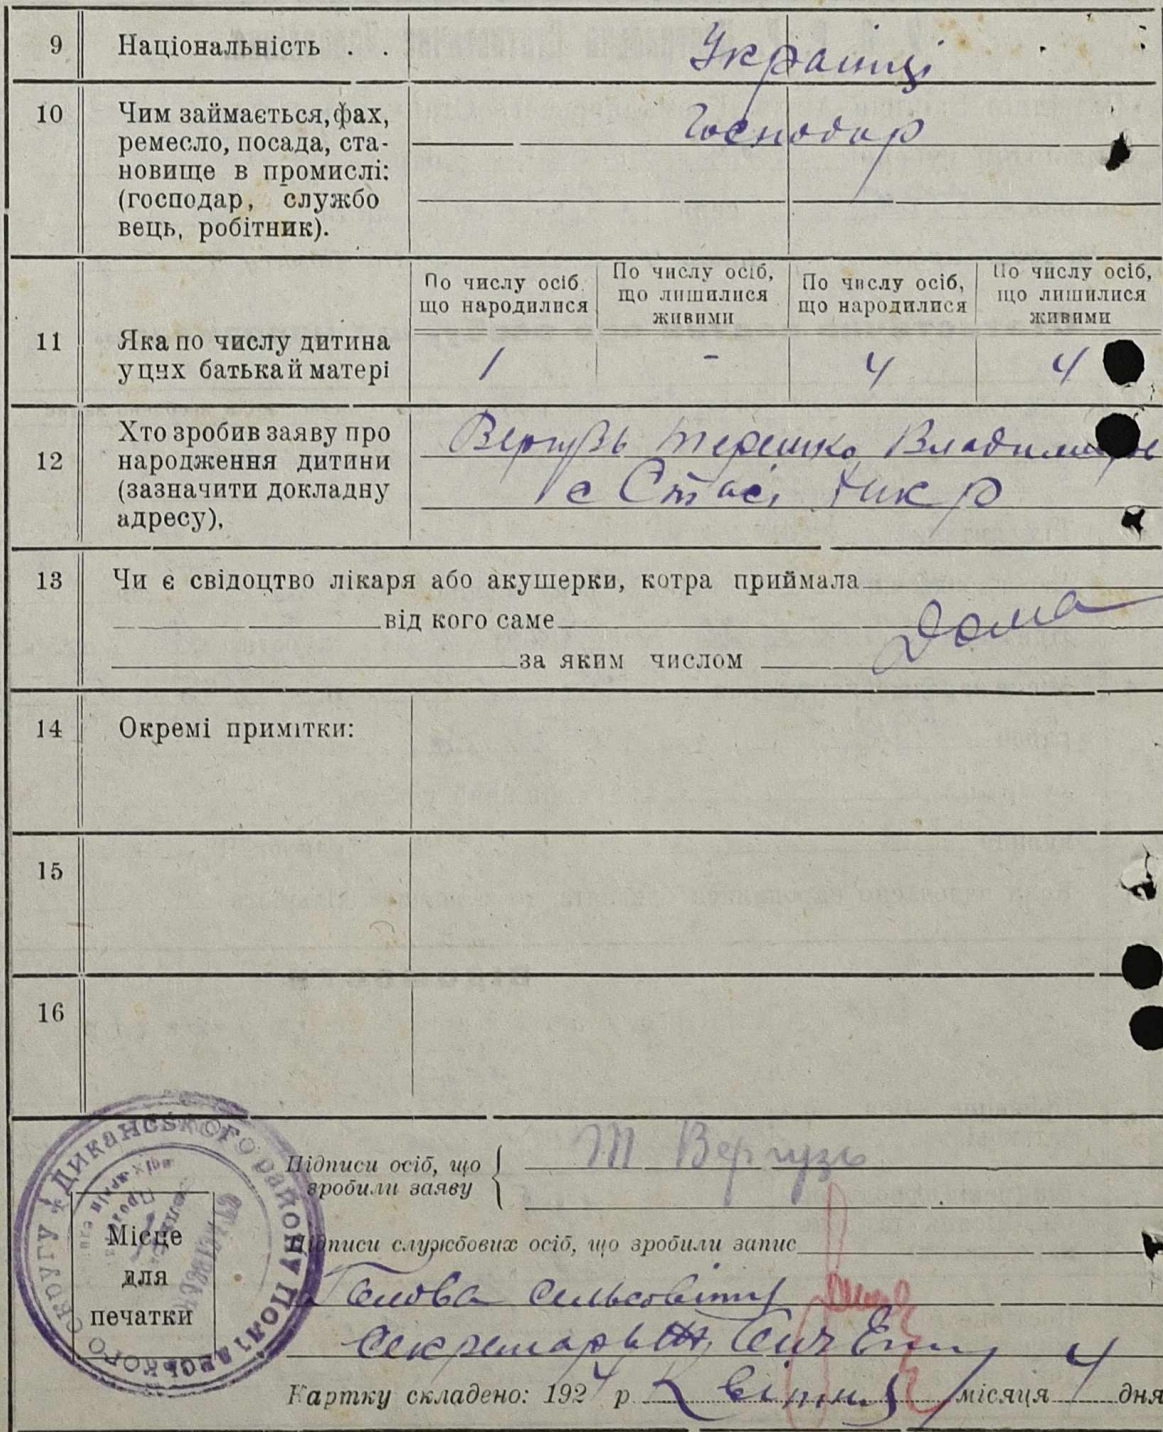 9 Національність . . Українці
10 Чим займається, фах, Господар
ремесло, посада, ста-
новище в промислі:
(господар, службо
вець, робітник).
По числу осіб, що народилися По числу осіб, що лишилися живими По числу осіб, що народилися По числу осіб, що лишилися живими
11 Яка по числу дитина
у цих батька й матері 1 - 4 4
12 Хто зробив заяву про Вергузь Терешко
народження дитини
(зазначити докладну с Стасі
адресу),
13 Чи є свідоцтво лікаря або акушерки, котра приймала
від кого саме Дома
за яким числом
14 Окремі примітки:
15
16
Диканського району Полтавського округу
Підписи осіб, що Т Вергузь
зробили заяву
Місце
для
печатки
Підписи службових осіб, що зробили запис
Голова сельсовіту
Секретарь
Картку складено: 1924 р Квітня місяця 4 дня